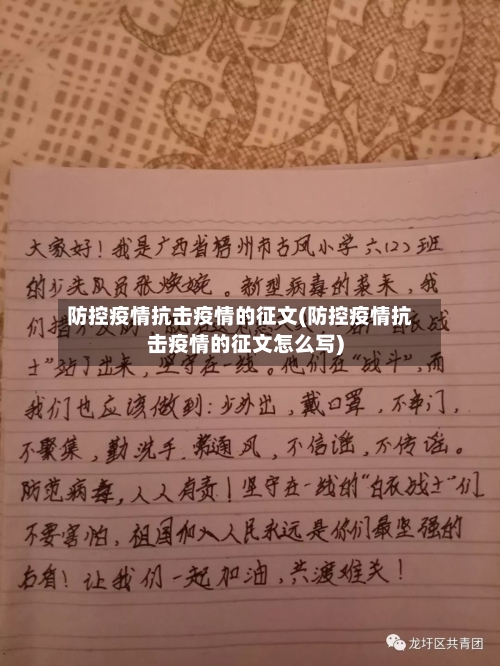 大家好！我是广西省梧州市古凤小学六(2)班
的少先队员张焕婉。新型病毒的袭来，我
们措
防控疫情抗击疫情的征文(防控疫情抗
击疫情的征文怎么写)
士”站了出来，坚守在一线。他们在“战斗”，而
我们也应该做到：少外出，戴口罩，不串门，
不聚集，勤洗手，常通风，不信谣，不传谣。
防范病毒，人人有责！坚守在一线的“白衣战士”们
不要害怕，祖国和人民永远是你们最坚强的
后盾！让我们一起加油，共渡难关！
龙圩区共青团